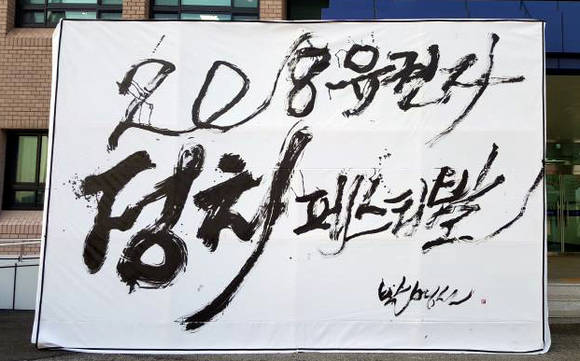 2018유권자
정치 페스티벌